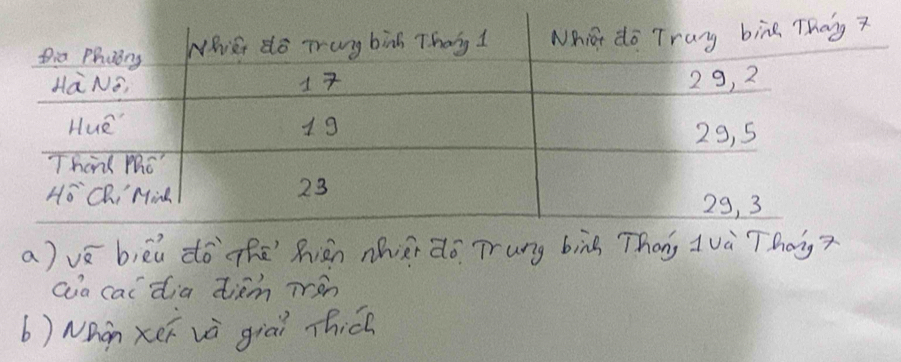 Địa Phương Nhiệt độ Trung bình Tháng 1 Nhiệt độ Trung bình Tháng 7
Hà Nội 17 29,2
Huế 19 29,5
Thành Phố
Hồ Chí Minh 23 29,3
a) vẽ biểu đồ thể hiện nhiệt độ Trung bình Tháng 1 và Tháng 7
của các địa điểm trên
b) Nhận xét và giải thích